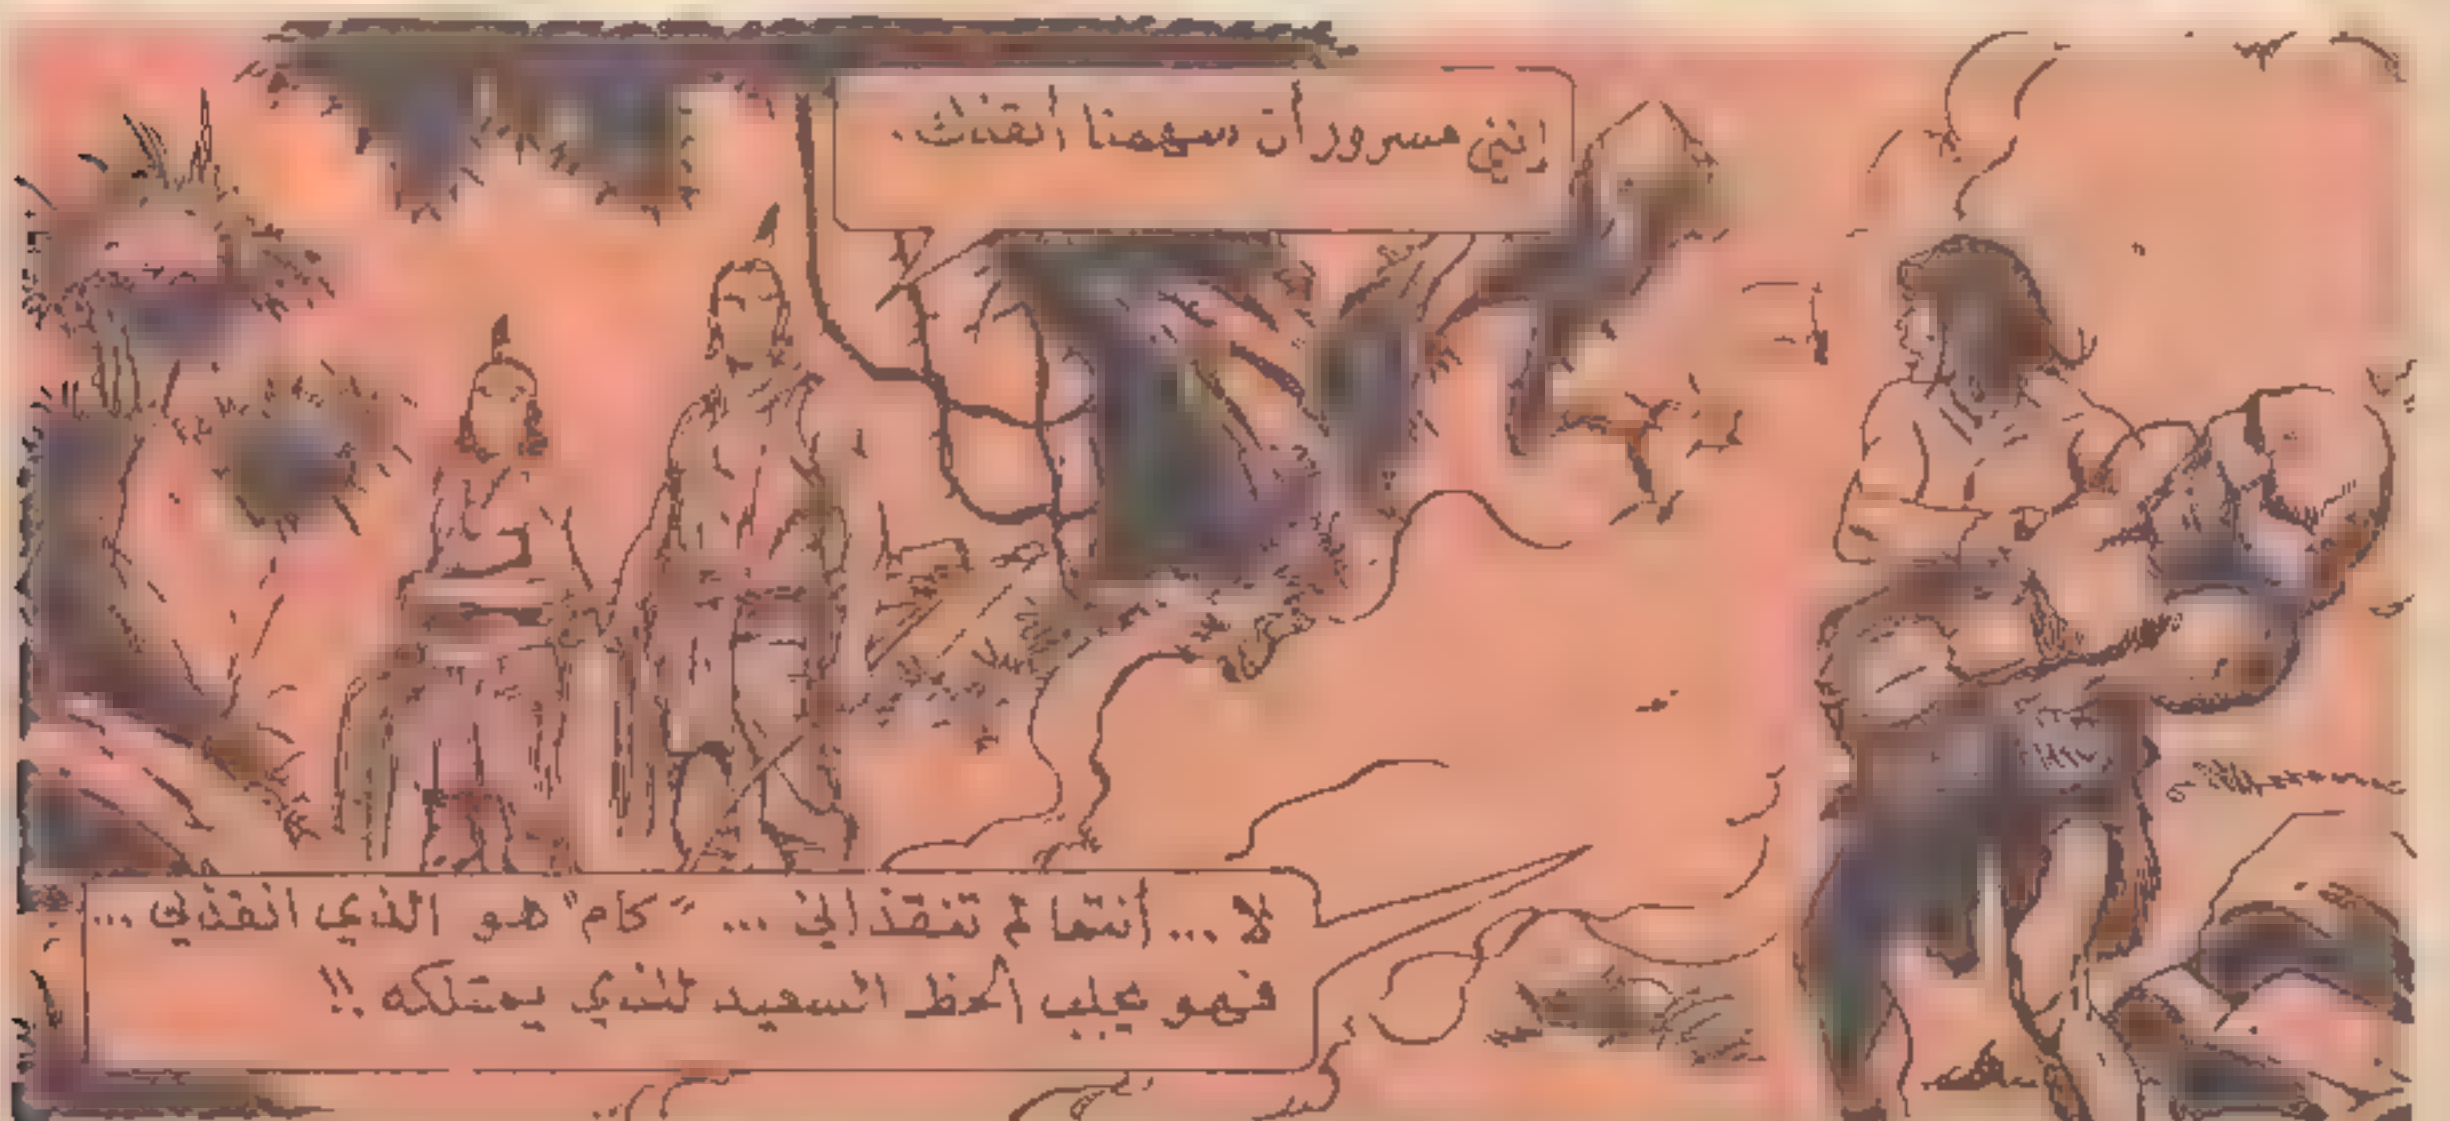 إنني مسرور أن سهمنا أنقذك.
لا... أنتما لم تنقذاني... "كام" هو الذي انقذني...
فهو يجلب الحظ السعيد للذي يمتلكه!!